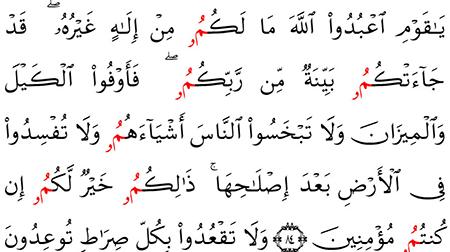 يَـٰقَوْمِ ٱعْبُدُوا۟ ٱللَّهَ مَا لَكُمُۥ مِنْ إِلَـٰهٍ غَيْرُهُۥ ۖ قَدْ
جَآءَتْكُمُۥ بَيِّنَةٌ مِّن رَّبِّكُمُۥ ۖ فَأَوْفُوا۟ ٱلْكَيْلَ
وَٱلْمِيزَانَ وَلَا تَبْخَسُوا۟ ٱلنَّاسَ أَشْيَآءَهُمُۥ وَلَا تُفْسِدُوا۟
فِى ٱلْأَرْضِ بَعْدَ إِصْلَـٰحِهَا ۚ ذَٰلِكُمُۥ خَيْرٌ لَّكُمُۥ إِن
كُنتُمُۥ مُؤْمِنِينَ ۝٨٤ وَلَا تَقْعُدُوا۟ بِكُلِّ صِرَٰطٍ تُوعِدُونَ